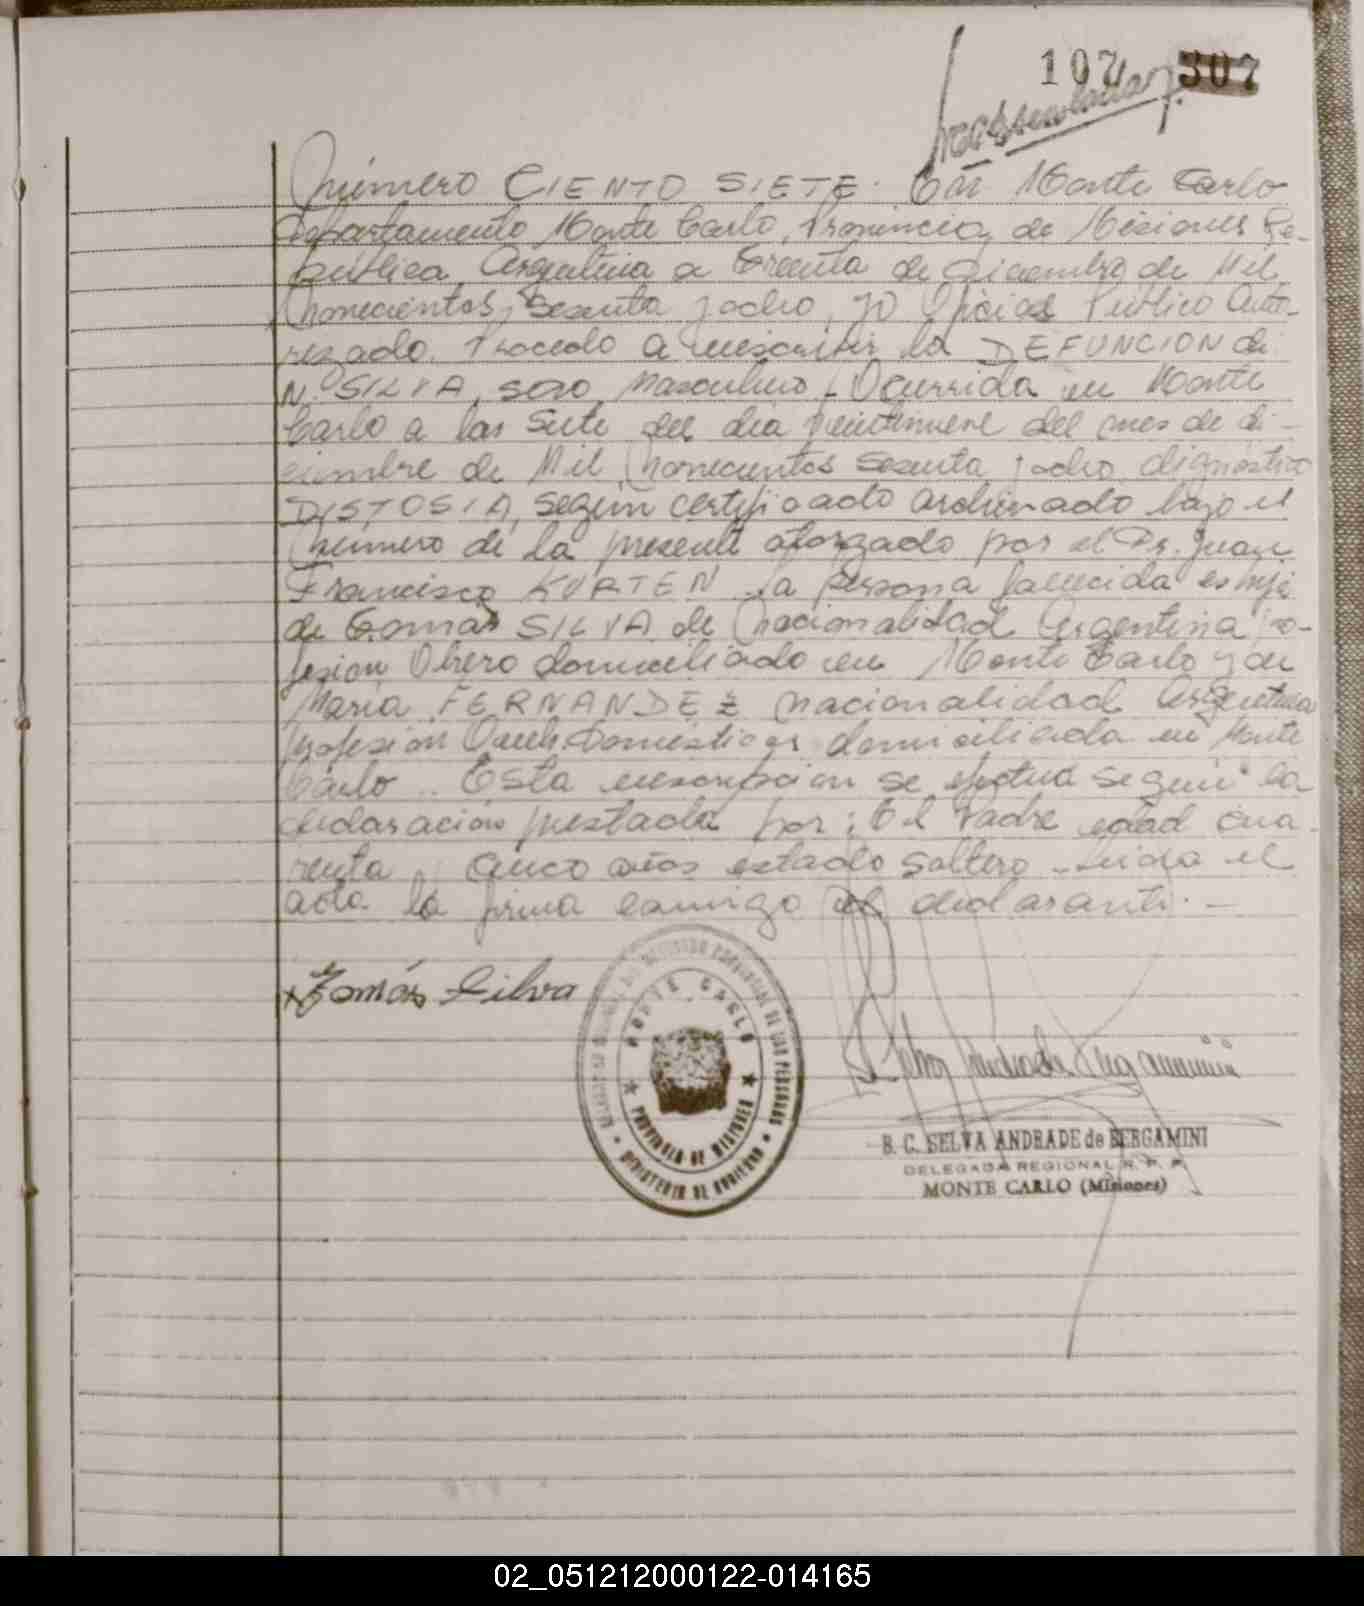 107 307
Número CIENTO SIETE. En Monte Carlo
Departamento Monte Carlo, Provincia de Misiones Re-
pública Argentina a treinta de diciembre de Mil
Novecientos sesenta y ocho, yo Oficial Público Auto-
rizado. Procedo a inscribir la DEFUNCION de
N. SILVA, sexo Masculino. Ocurrida en Monte
Carlo a las siete del día veintinueve del mes de di-
ciembre de Mil Novecientos sesenta y ocho dignóstico
DISTOSIA, según certificado archivado bajo el
número de la presente otorgado por el Dr. Juan
Francisco KURTEN. La persona fallecida es hijo
de Tomás SILVA de Nacionalidad Argentina pro-
fesión Obrero domiciliado en Monte Carlo y de
María FERNANDEZ nacionalidad Argentina
profesión Queh. Domésticos domiciliada en Monte
Carlo. Esta inscripción se efectúa según la
declaración prestada por: El Padre edad cua-
renta y cinco años estado soltero. Leída el
acta la firma conmigo el declarante. -
Tomás Silva
MONTE CARLO
PROVINCIA DE MISIONES
MINISTERIO DE GOBIERNO
B. C. SELVA ANDRADE de BERGAMINI
DELEGADA REGIONAL R. P. P.
MONTE CARLO (Misiones)
02_051212000122-014165